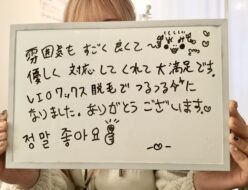 雰囲気も すごく 良くて〜
優しく 対応 して くれて 大満足です。
VIOワックス 脱毛で つるつる に
なりました。ありがとう ございます。
정말 좋아요